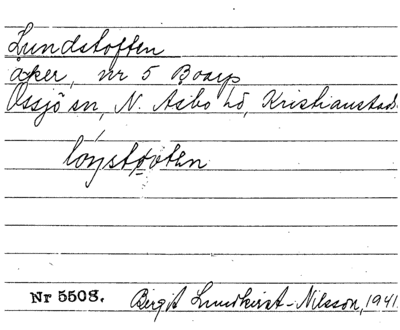 Lundstoften
åker, nr 5 Boarp
Össjö sn, N. Åsbo hd, Kristianstads
Nr 5508. Birgit Lundkvist-Nilsson, 1941